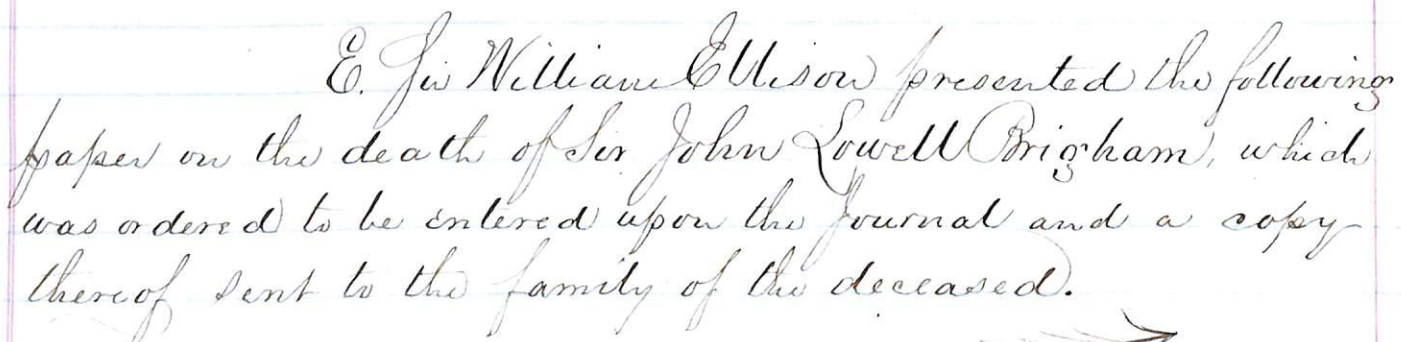 E. Sir William Ellison presented the following
paper on the death of Sir John Lowell Brigham, which
was ordered to be entered upon the Journal and a copy
thereof sent to the family of the deceased.